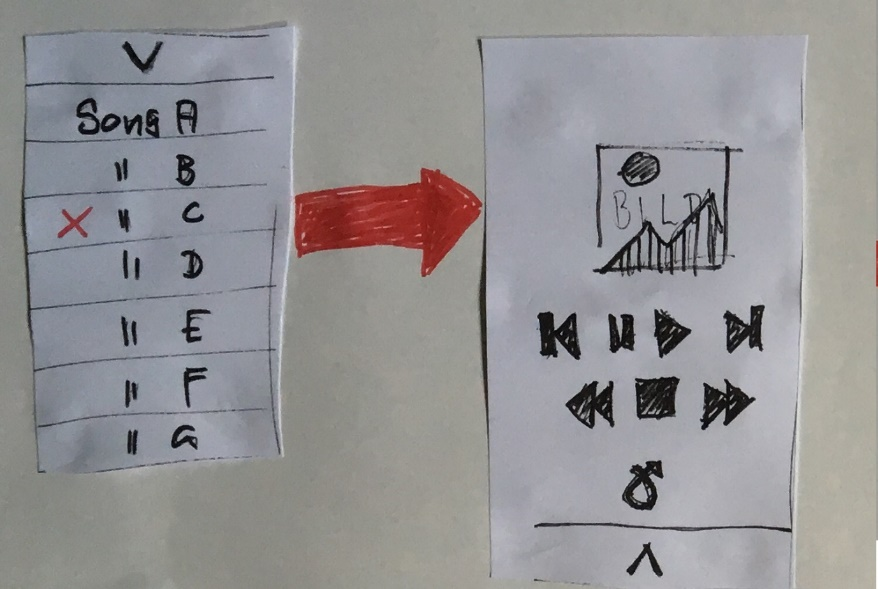 V
Song A
" B
X " C
" D
" E
" F
" G
BILD